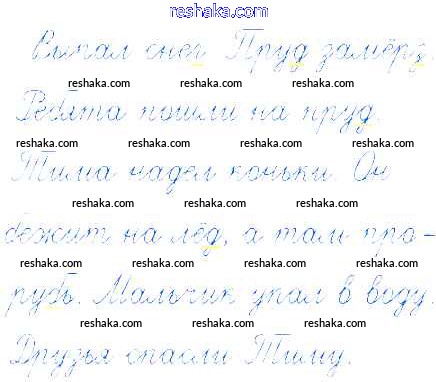 reshaka.com
Выпал снег. Пруд замёрз.
reshaka.com reshaka.com reshaka.com
Ребята пошли на пруд.
reshaka.com reshaka.com reshaka.com
Тима надел коньки. Он
reshaka.com reshaka.com reshaka.com
бежит на лёд, а там про-
reshaka.com reshaka.com reshaka.com
рубь. Мальчик упал в воду.
reshaka.com reshaka.com reshaka.com
Друзья спасли Тиму.